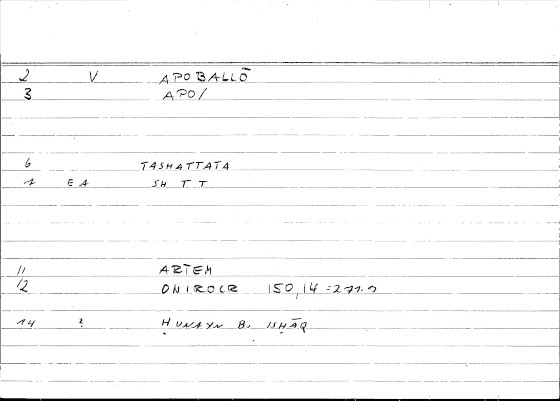 2 V APOBALLŌ
3 APO/
6 TASHATTATA
7 EA SH T T
11 ARTEM
12 ONIROCR 150,14 = 271.
14 ? ḤUNAYN B. ISḤĀQ